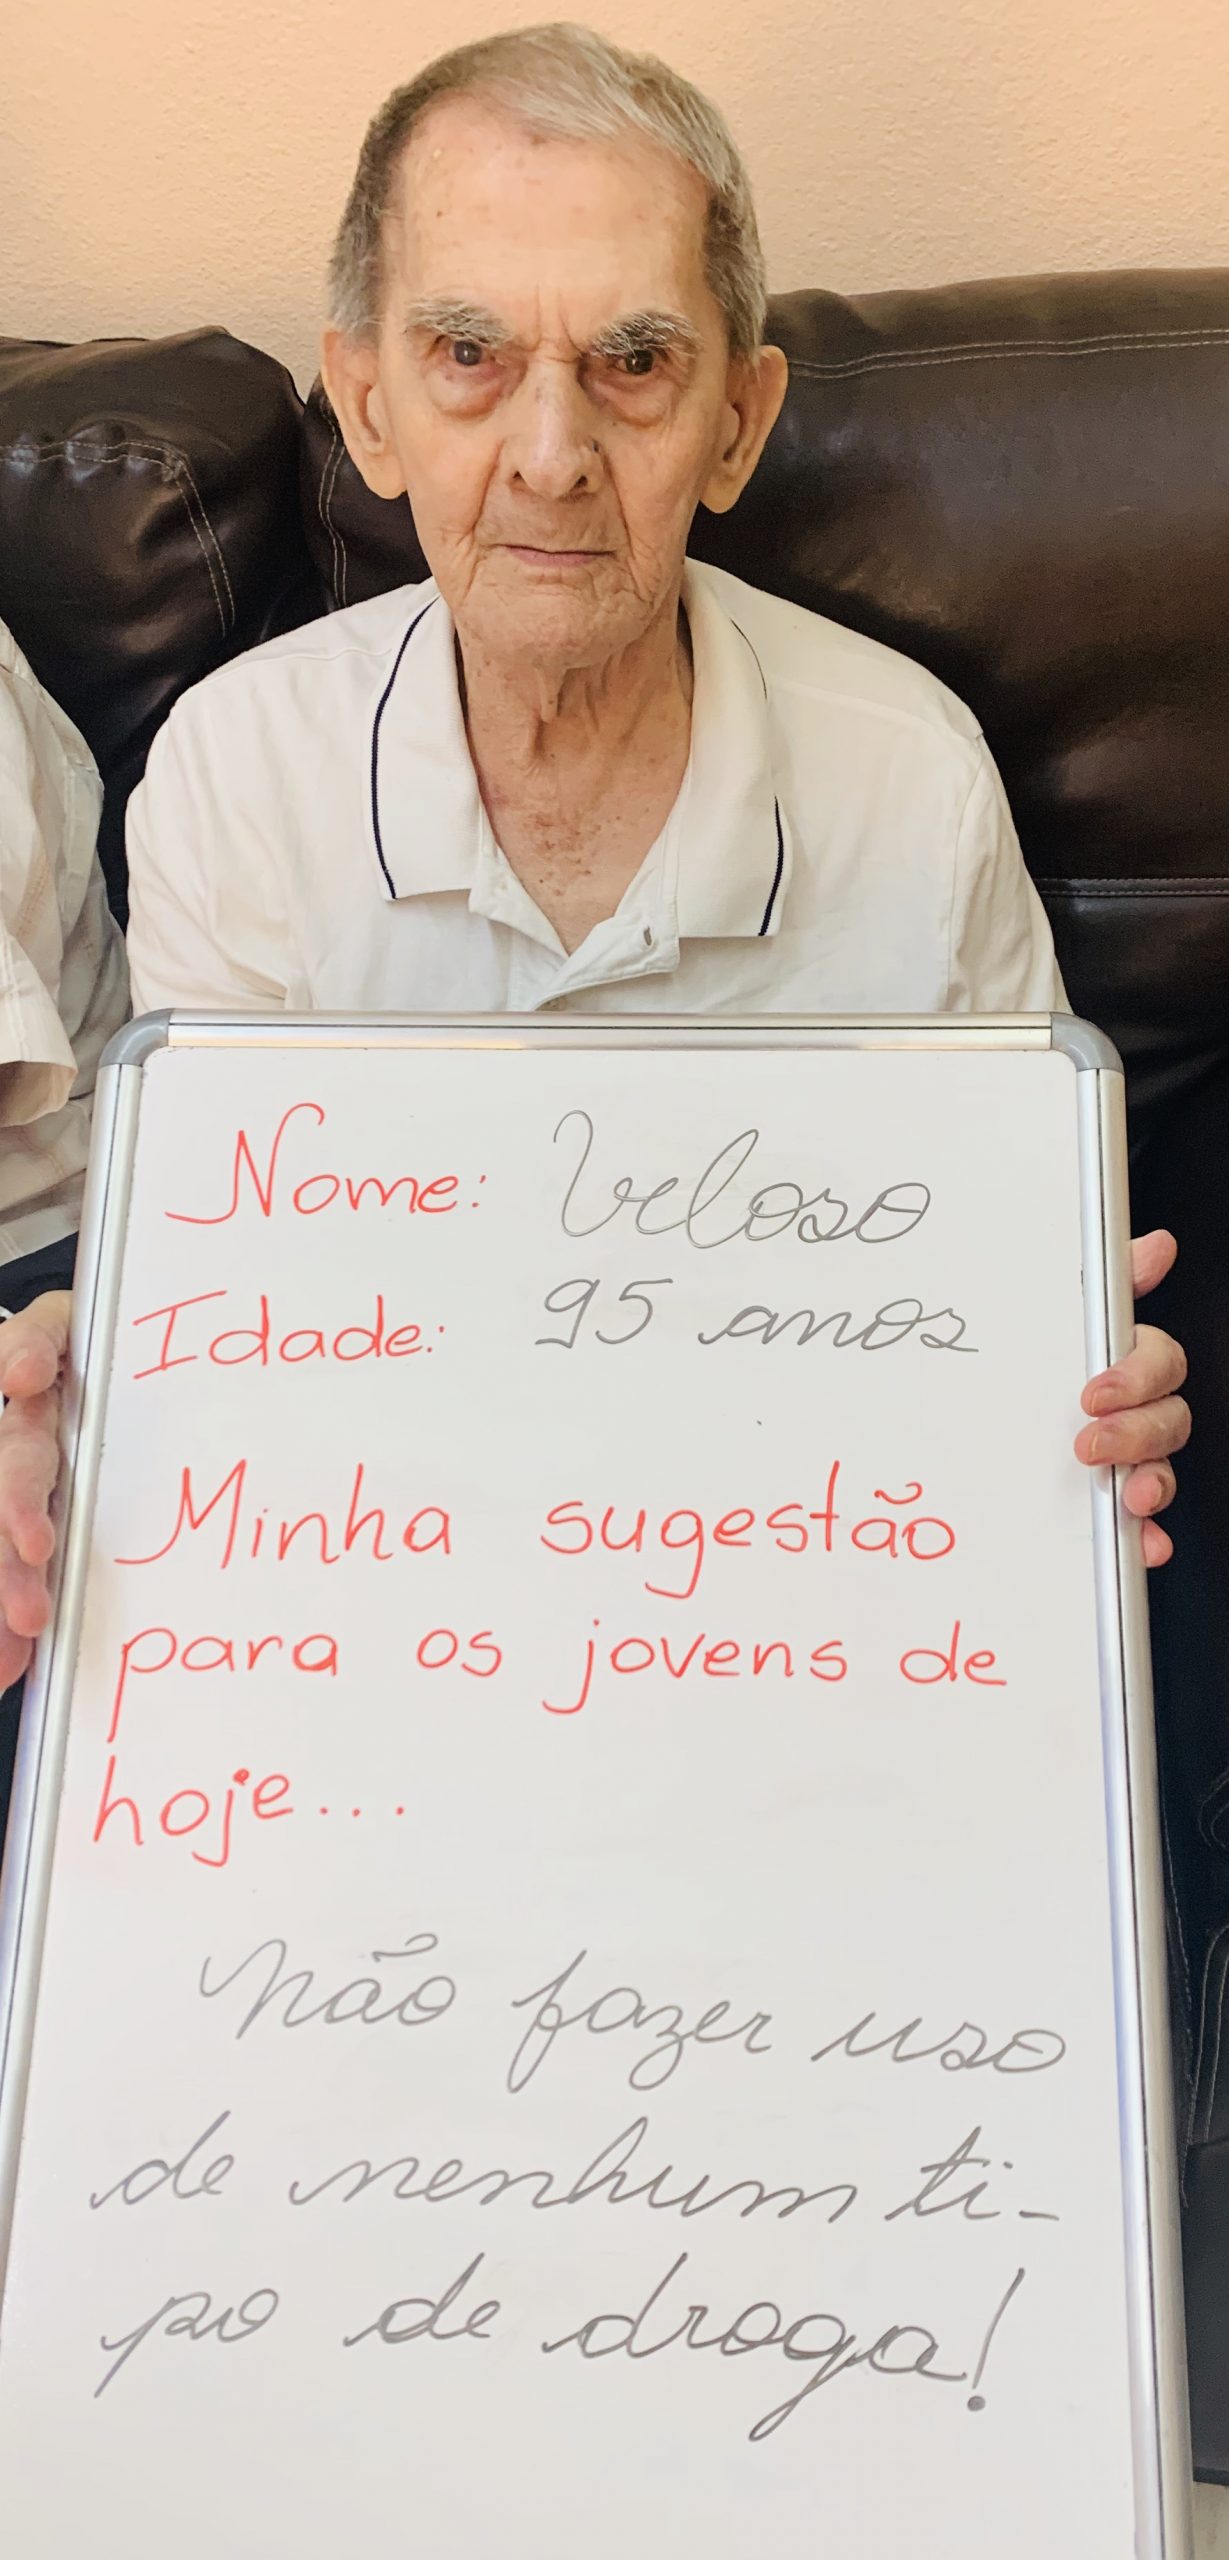 Nome: Veloso
Idade: 95 anos
Minha sugestão
para os jovens de
hoje...
Não fazer uso
de nenhum ti-
po de droga!